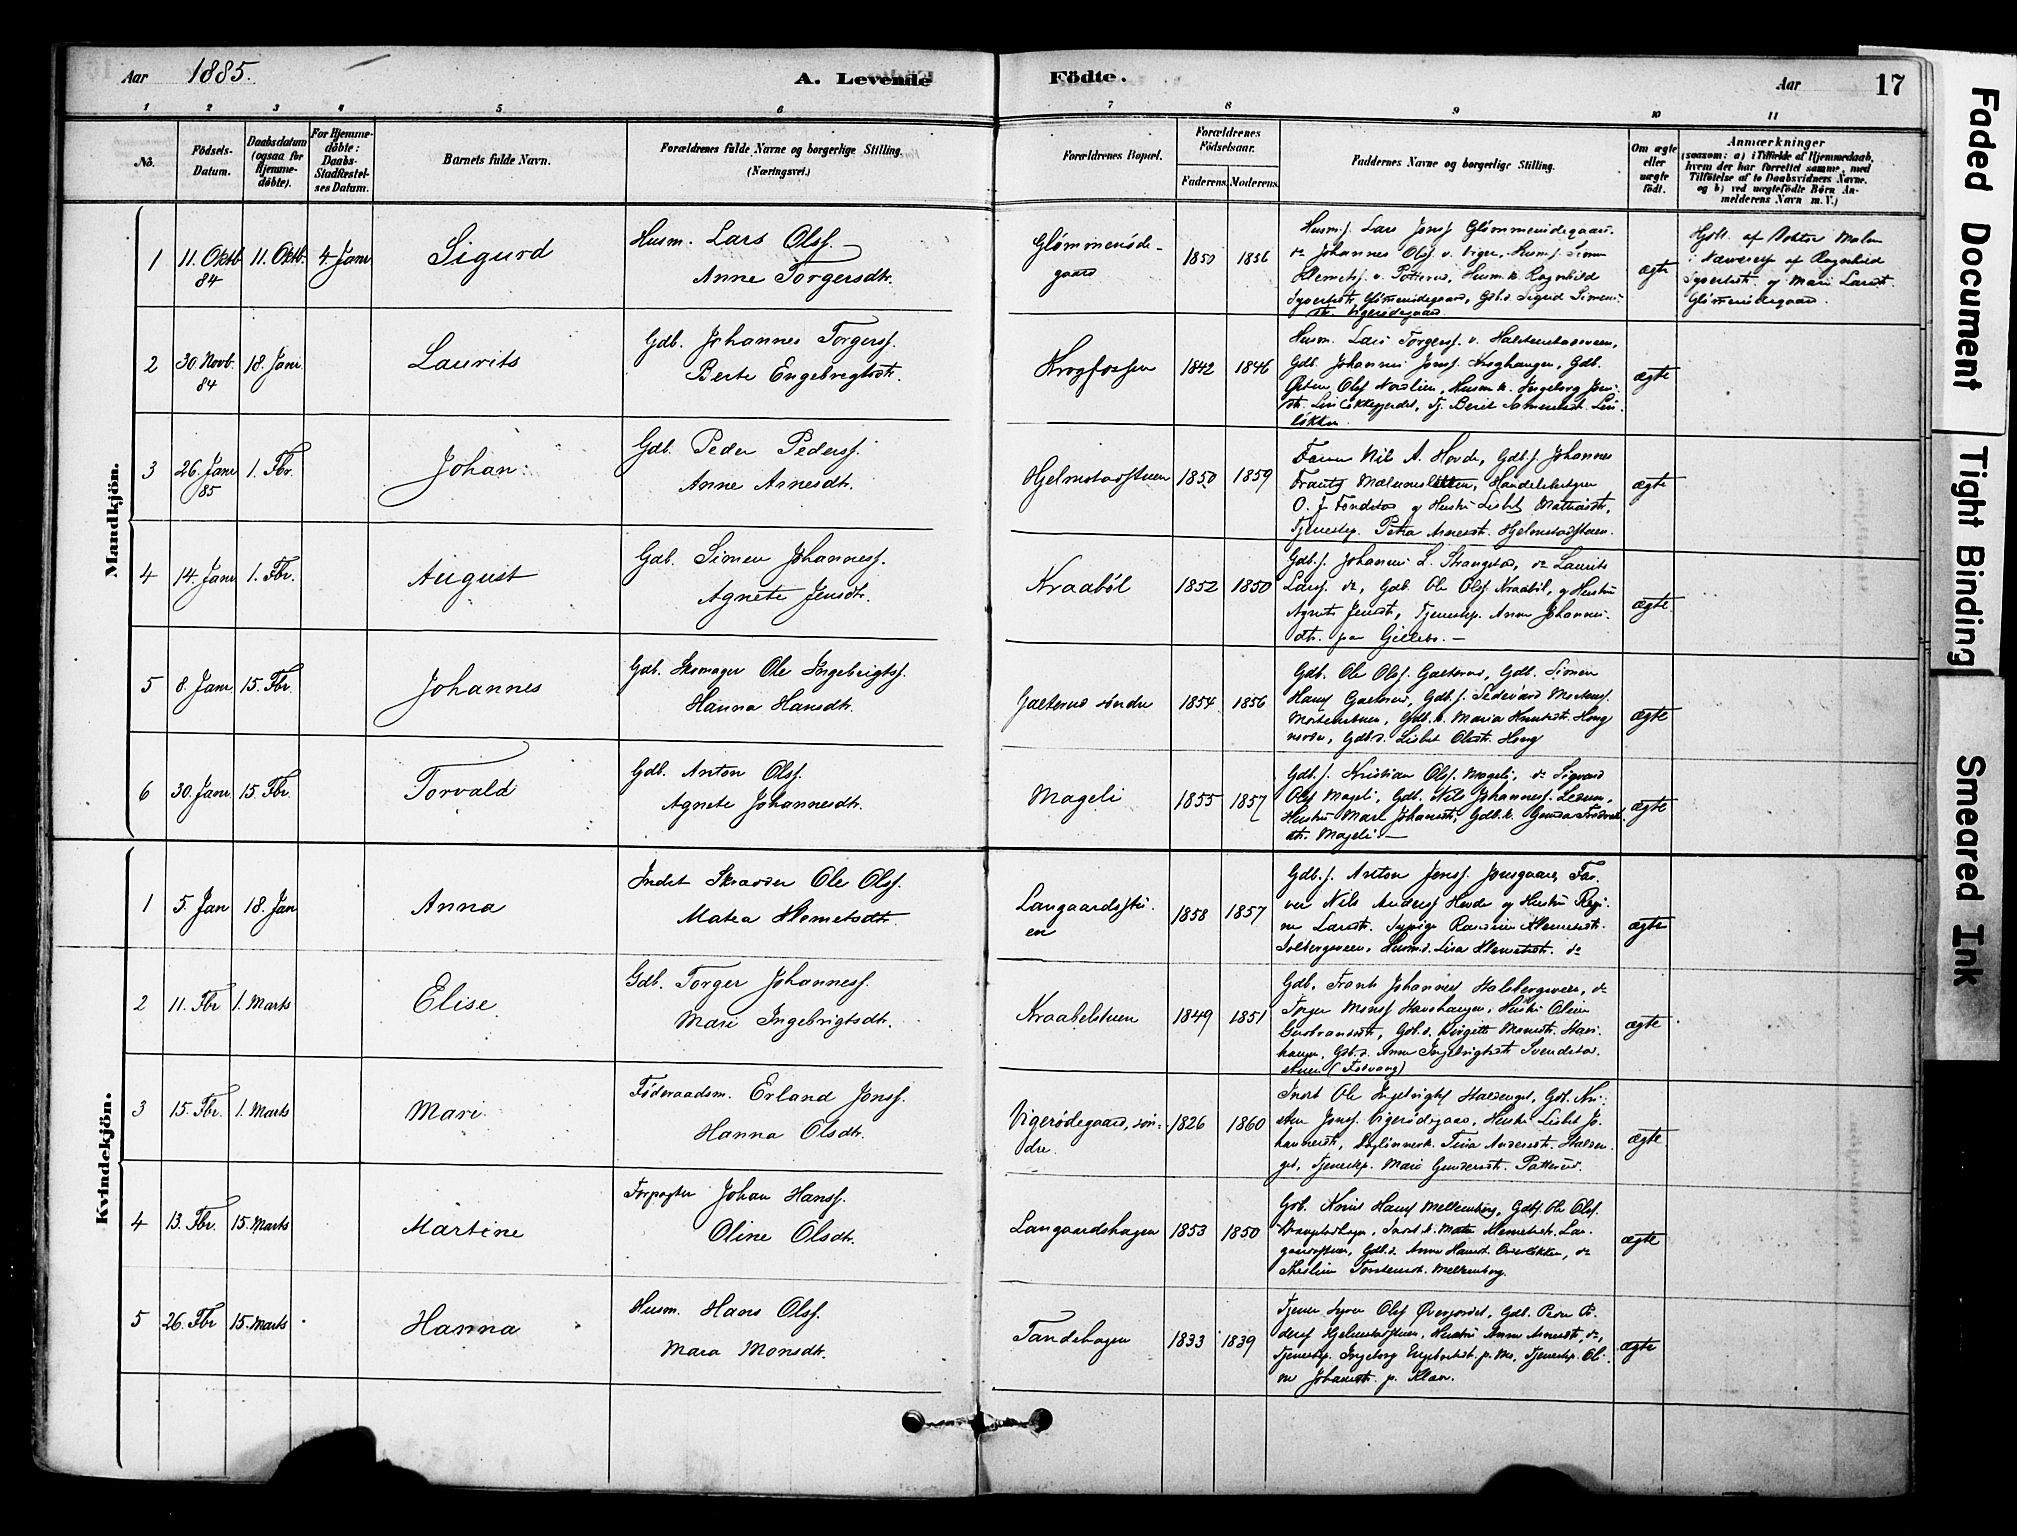 Aar 1885. A. Levende Födte. Aar 17
1 2 3 4 5 6 7 8 9 10 11
No.
Födsels-Datum.
Daabsdatum (ogsaa for Hjemme-döbte).
For Hjemme-döbte: Daabs-Stadfæstel-ses Datum.
Barnets fulde Navn.
Forældrenes fulde Navne og borgerlige Stilling. (Næringsvei.)
Forældrenes Bopæl.
Forældrenes Födselsaar.
Faderens. Moderens.
Faddernes Navne og borgerlige Stilling.
Om ægte eller uægte födt.
Anmærkninger
(saasom: a) i Tilfælde af Hjemmedaab,
hvem der har forrettet samme, med
Tilföielse af to Daabsvidners Navne.
og b) ved uægtefödte Börn An-
melderens Navn m. V.)
Mandkjön.
1 11. Oktb. 84 11. Oktb. 4. Janr Sigurd
Husm. Lars Olsf.
Anne Torgersdtr.
Glømmenøde-
gaard 1850 1856
Husm.f. Lars Jonsf Glømmenødegaard.
do Johannes Olsf. v. Viger, Husm.f. Simen
Klemetsf. v. Potterud, Husm.k. Ragnhild
Syvertsdtr. Glømmenødegaard, Gdb.d. Sigrid Simens-
dtr. Vigerødegaard.
ægte
Hjdt. af Doktor
i af Ragnhild
Syvertsdtr. og Mari Larsdtr.
Glømmenødegaard.
2 30. Novb. 84 18. Janr. Laurits
Gdb. Johannes Torgersf.
Berte Engebrigtsdtr.
Krogfossen 1842 1846
Husm. Lars Torgersf. v.
Gdb. Johannes Jonsf. Kroghaugen, Gdb.
Olsf Nordlien, Husm.k. Ingeborg Jons-
dtr. Linløkkegjerdet, Tj. Berit Lin-
løkken.
ægte
3 26. Janr 85 1. Fbr. Johan.
Gdb. Peder Pedersf.
Anne Arnesdtr.
Hjelmstadstuen 1850 1859
Farver Nils A. Hovde, Gdb.f. Johannes
Frants Handelsbetjen
O. J. og Hustru Lisbet Mathisdtr,
Tjenestep. Petra Arnesdtr. Hjelmstadstuen.
ægte
4 14. Janr 1. Fbr. August
Gdb. Simen Johannesf.
Agnete Jensdtr.
Kraabøl 1852 1850
Gdb.f. Johannes L. Strangstad, do Laurits
Larsf. do, Gdb. Ole Olsf Kraabøl, og Hustru
Agnete Jensdtr, Tjenestep. Anne Johannes-
dtr. paa Gillebo. —
ægte
5 8. Janr 15. Fbr. Johannes
Gdb. Skomager Ole Ingebrigtsf.
Hanna Hansdtr.
Gaeterud søndre 1854 1856
Gdb. Ole Olsf. Gaeterud, Gdb. Simen
Hansf Gaeterud, Gdb.f. Mortensf.
Mortenstuen, Gdb.k. Maria Haug
nordre, Gdb.d. Lisbet Olsdtr. Haug
ægte
6 30. Janr. 15. Fbr. Torvald
Gdb. Anton Olsf.
Agnete Johannesdtr.
Mageli 1855 1857
Gdb.f. Kristian Olsf. Mageli, do Sigvard
Olsf Mageli, Gdb. Nils Johannesf. Lesum,
Hustru Mari Johansdtr, Gdb.k.
dtr. Mageli. —
ægte
Kvindekjön.
1 5. Jan 18. Jan Anna
Indst Skrædder Ole Olsf.
Matea Klemetsdtr.
Langaardsstu-
en 1858 1857
Gdb.f. Anton Jensf. Jonsgaard, Far-
ver Nils Andersf Hovde og Hustru Regi-
ne Larsdtr. Sypige Klemetsdtr.
Solbergsveen, Husm.d. Lisa Klemetsdtr. do
ægte
2 11. Fbr 1. Marts Elise
Gdb. Torger Johannesf.
Mari Ingebrigtsdtr.
Kraabelstuen 1849 1851
Gdb. Frants Johannesf Stalsbergsveen, do
Torger Monsf Hanshaugen, Hustru Oline
Gudbrandsdtr, Gdb.d. Birgitte Monsdtr. Hans-
haugen, Gdb.d. Anne Ingebrigtsdtr Svendstad-
stuen
ægte
3 15. Fbr. 1. Marts Mari
Føderaadsm. Erland Jonsf.
Hanna Olsdtr.
Vigerødegaard, søn-
dre. 1826 1860
Indst Ole Ingebrigtsf Gdb. Kri-
sten Jonsf. Vigerødegaard, Hustru Lisbet Jo-
hannesdtr, Tina Andersdtr.
Tjenestep. Mari Gundersdtr. Potterud.
ægte
4 13. Fbr. 15. Marts Martine
Forpagter Johan Hansf.
Oline Olsdtr.
Langaardshagen 1853 1850
Gdb. Knud Hansf Mellemberg, Gdb.f. Ole Olsf.
Indst.k. Matea Klemetsdtr. Lan-
gaardsstuen, Gdb.d. Anne Hansdtr. do
Torstensdtr. Mellemberg.
ægte
5 26. Fbr 15. Marts Hanna
Husm. Hans Olsf.
Mara Monsdtr.
Tandehagen 1833 1839
Tjener Syver Olsf Øvergjordet, Gdb. Peder Pe-
dersf Hjelmstadstuen, Hustru Anne Arnesdtr, do,
Tjenestep. Ingeborg Tjenestep. Oli-
ne Johansdtr. p. Klæva.
ægte
Faded Document
Tight Binding
Smeared Ink